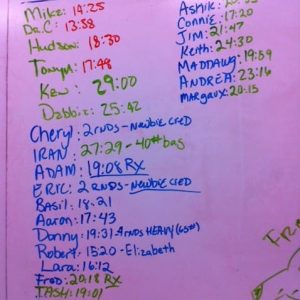 Mike: 14:25
Dr.C: 13:58
Hudson: 18:30
Tonya: 17:48
Ken: 29:00
Debbie: 25:42
Cheryl: 2 RNDS - Newbie CFED
IRAN: 27:29 - 40# bas
ADAM: 19:08 RX
ERIC: 2 RNDS - Newbie CFED
Basil: 18:21
Aaron: 17:43
Donny: 19:31 4 RNDS HEAVY
Robert: 15:20 - Elizabeth
Lara: 16:12
Fred: 20:18 RX
TASH: 19:01
Ashik:
Connie: 17:20
JIM: 21:47
Keith: 24:30
MADDAWG: 19:59
ANDREA: 23:16
MARGAUX: 20:15